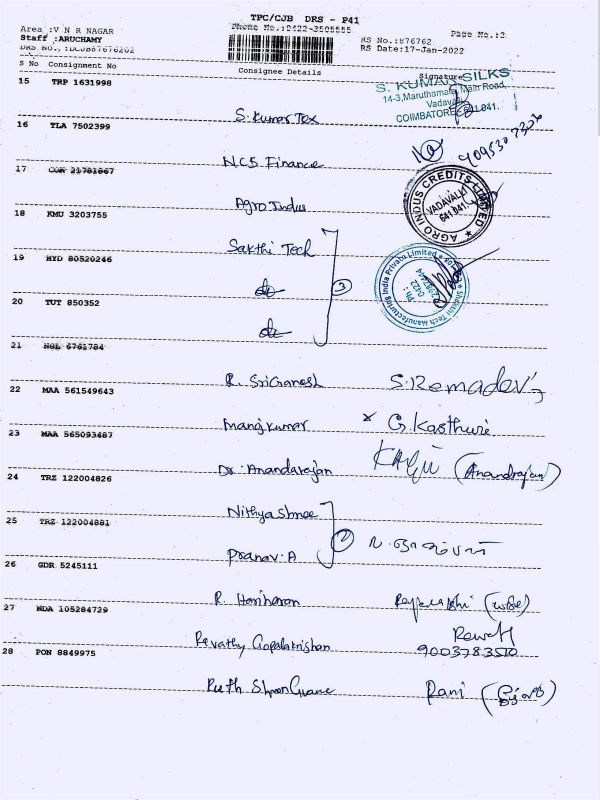 TPC/CJB DRS - P41
Area :V N R NAGAR
Phone No.:0422-2505555
Page No.:2
Staff :ARUCHAMY
RS No.:876762
DRS No., :DCJB87676202
RS Date:17-Jan-2022
S No Consignment No Consignee Details Signature
15 TRP 1631998 S. Kumar Tex
S. KUMAR SILKS
14-3,Maruthamalai Main Road,
Vadavalli
COIMBATORE - 641 041.
16 TLA 7502399 NCS Finance
17 COK 21781867 Agro Indus
AGRO INDUS CREDITS LIMITED
VADAVALLI
641 041.
18 KMU 3203755 Sakthi Tech
19 HYD 80520246 do
3
Shakthi Tech Manufacturing India Private Limited
Ph :
0422
20 TUT 850352 do
21 NGL 6761784 R. SriGanesh S. Remadevi
22 MAA 561549643 Manojkumar x G. Kasthuri
23 MAA 565093487 Dr. Anandarajan (Anandrajan)
24 TRZ 122004826 Nithyashree
25 TRZ 122004881 Pranav. A
26 GDR 5245111 R. Hariharan
27 NDA 105284729 Revathy Gopalakrishan Revathi
9003783510
28 PON 8849975 Rani